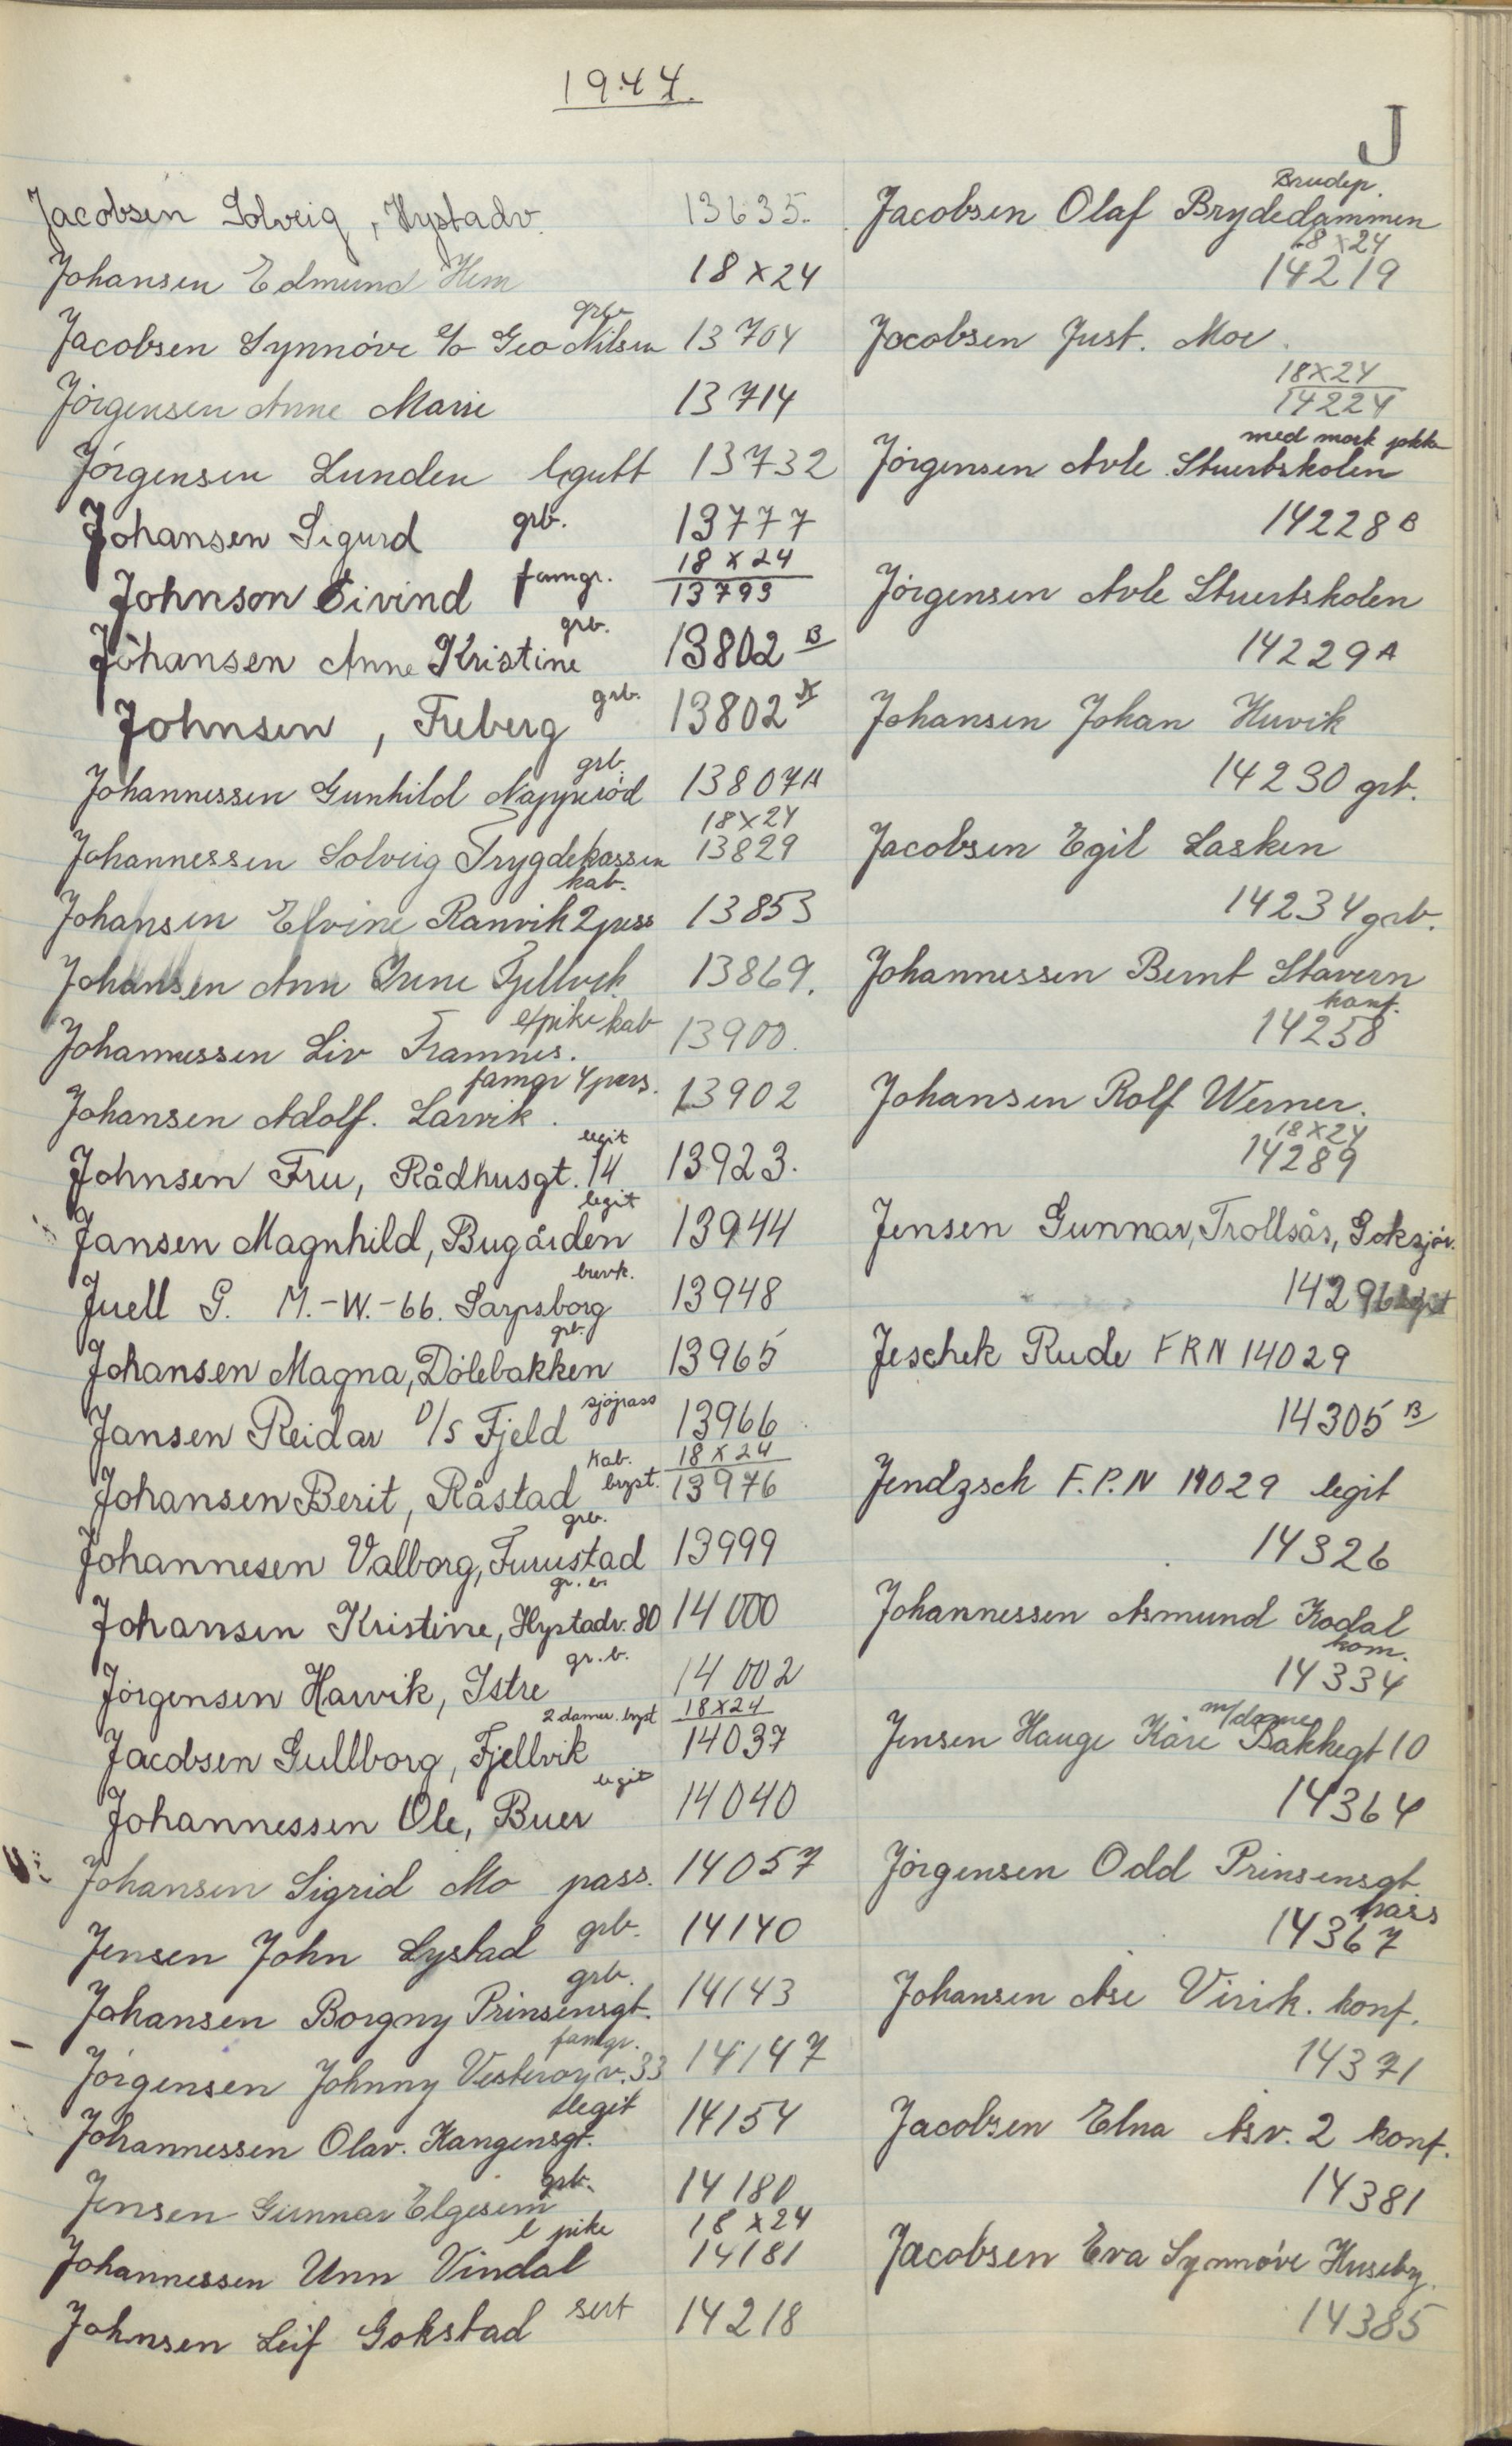 1944.
J
Jacobsen Solveig, Hystadv. 13635.
Johansen Edmund Hem 18x24
grb.
Jacobsen Synnöve c/o Geo Nilsen 13704
Jörgensen Anne Marie 13714
Jörgensen Lunden l.gutt 13732
Johansen Sigurd grb. 13777
Johnson Eivind famgr. 18x24 13793
grb.
Johansen Anne Kristine 13802 B
Johnsen, Freberg grb. 13802
grb.
Johannessen Gunhild Nappieröd 13807A
18x24
Johannessen Solveig Trygdekassen 13829
kab.
Johansen Elvine Ranvik 2 pers 13853
Johansen Ann Irene Fjellvik 13869.
kab
Johannessen Liv Framnes. 13900.
famgr 4 pers.
Johansen Adolf. Larvik. 13902
legit
Johnsen Fru, Rådhusgt. 14 13923.
legit
Jansen Magnhild, Bugården 13944
brevk.
Juell G. M.-W.-66. Sarpsborg 13948
grb.
Johansen Magna, Dölebakken 13965
Jansen Reidar D/S Fjeld sjöpass 13966
kab. 18x24
Johansen Berit, Råstad bryst. 13976
grb.
Johannesen Valborg, Furustad 13999
Johansen Kristine, Hystadv. 80 14000
gr.b.
Jörgensen Harvik, Istre 14002
2 damer bryst 18x24
Jacobsen Gullborg, Fjellvik 14037
legit
Johannessen Ole, Buer 14040
Johansen Sigrid Mo pass. 14057
Jensen John Lystad grb. 14140
grb.
Johansen Borgny Prinsensgt. 14143
famgr.
Jörgensen Johnny Vesteröyv. 33 14147
legit
Johannessen Olav. Kangensgt. 14154
grb.
Jensen Gunnar Elgesem 14180
l pike 18x24
Johannessen Unn Vindal 14181
Johnsen Leif Gokstad sert 14218
Brudep.
Jacobsen Olaf Brydedammen
18x24
14219
Jacobsen Just. Moe.
18x24
14224
med mørk jakke
Jörgensen Arle Stuertskolen
14228 B
Jörgensen Arle Stuertskolen
14229 A
Johansen Johan Huvik
14230 grb.
Jacobsen Egil Lasken
14234 grb.
Johannessen Bernt Stavern
konf.
14258
Johansen Rolf Werner.
18x24
14289
Jensen Gunnar, Trollsås, Goksjø.
14296 legit
Jeschek Rude FRN 14029
14305 B
Jendzsch F.P.N 14029 legit
14326
Johannessen Asmund Kodal
kom.
14334
m/dame
Jensen Hauge Kåre Bakkegt 10
14364
Jörgensen Odd Prinsensgt.
pass
14367
Johansen Åse Virik. konf.
14371
Jacobsen Elna Åsv. 2 konf.
14381
Jacobsen Eva Synnöve Huseby.
14385